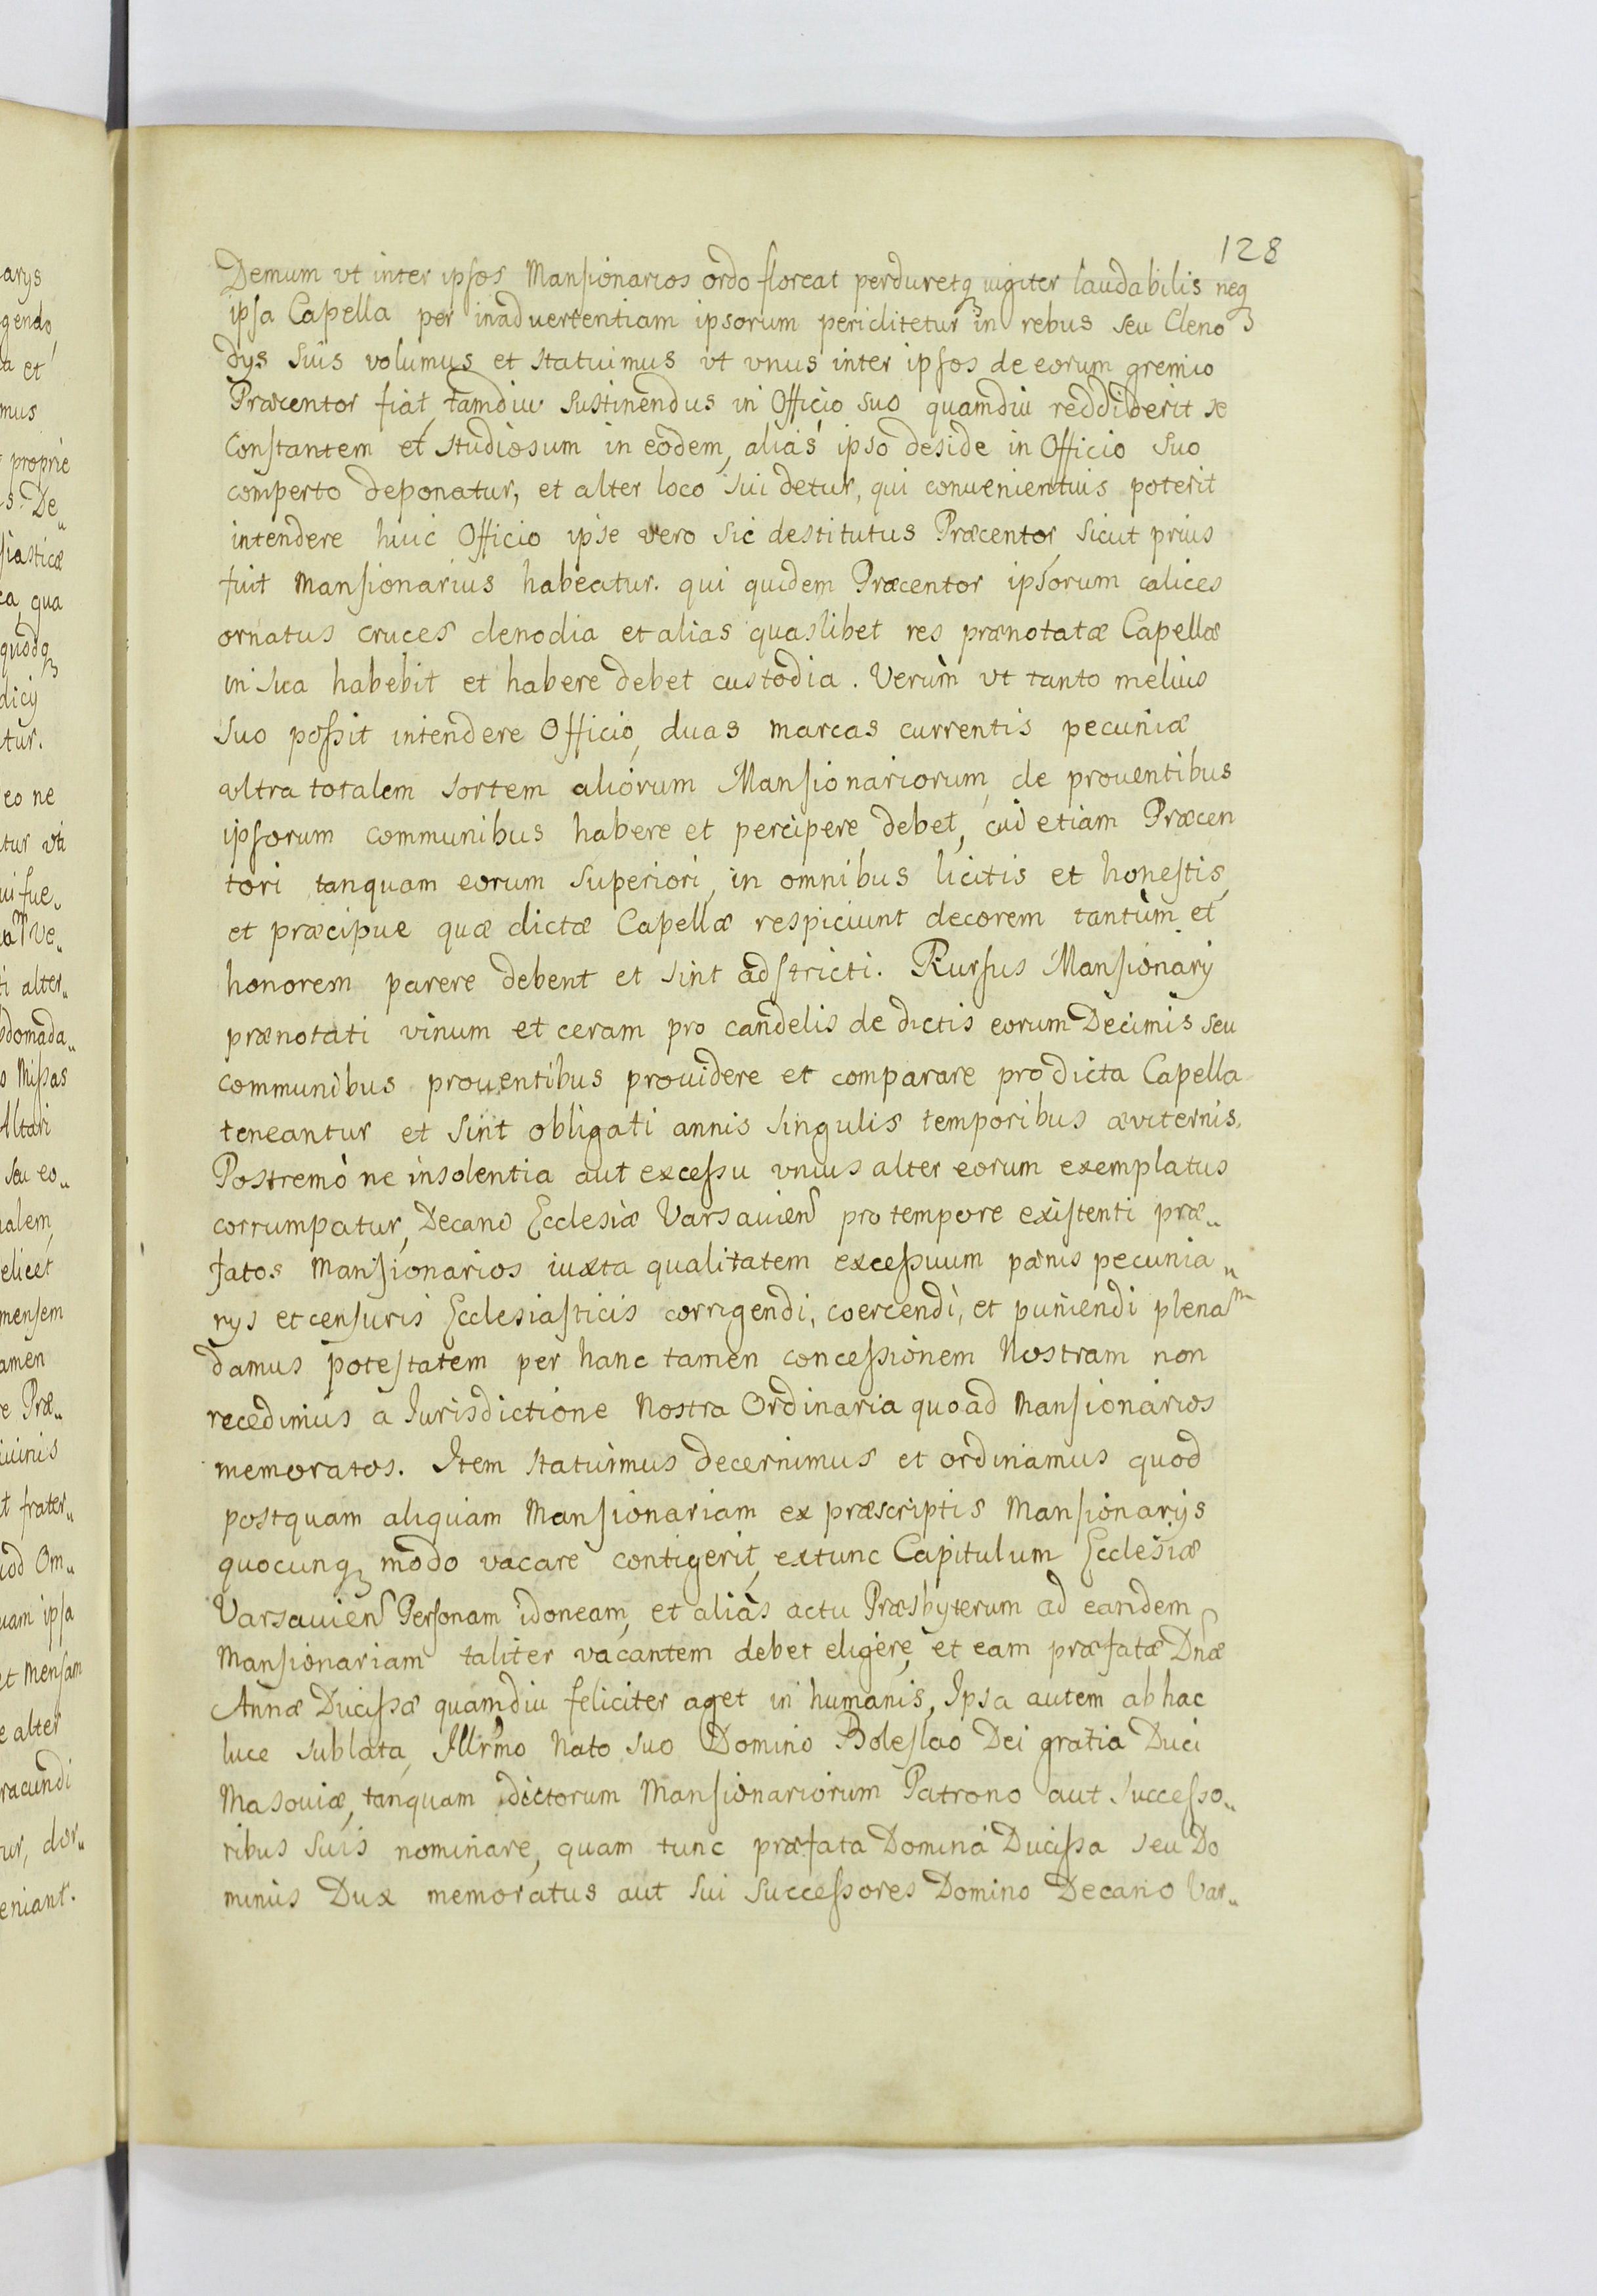 128
Demum vt inter ipsos Mansionarios ordo floreat perduretq; iugiter laudabilis neq;
ipsa Capella per inaduertentiam ipsorum periclitetur in rebus seu Cleno
dys suis volumus et statuimus vt vnus inter ipsos de eorum gremio
Præcentor fiat, tamdiu sustinendus in Officio suo quamdiu reddiderit se
constantem et studiosum in eodem, aliàs ipso deside in Officio suo
comperto deponatur, et alter loco sui detur, qui conuenientius poterit
intendere huic Officio ipse vero sic destitutus Præcentor, sicut prius
fuit Mansionarius habeatur. qui quidem Præcentor ipsorum calices
ornatus cruces clenodia et alias quaslibet res prænotatæ Capellæ
in sua habebit et habere debet custodia. Verùm vt tanto melius
suo possit intendere Officio, duas marcas currentis pecuniæ
vltra totalem sortem aliorum Mansionariorum, de prouentibus
ipsorum communibus habere et percipere debet, cui etiam Præcen
tori tanquam eorum superiori, in omnibus licitis et honestis,
et præcipue quæ dictæ Capellæ respiciunt decorem tantùm et
honorem parere debent et sint adstricti. Rursus Mansionarij
prænotati vinum et ceram pro candelis de dictis eorum Decimis seu
communibus prouentibus prouidere et comparare pro dicta Capella
teneantur et sint obligati annis singulis temporibus æviternis.
Postremò ne insolentia aut excessu vnius alter eorum exemplatus
corrumpatur, Decano Ecclesiæ Varsauien pro tempore existenti præ„
fatos Mansionarios iuxta qualitatem excessuum pænis pecunia„
rys et censuris Ecclesiasticis corrigendi, coercendi, et puniendi plenaᵐ
damus potestatem per hanc tamen concessionem Nostram non
recedimus a Iurisdictione Nostra Ordinaria quoad Mansionarios
memoratos. Item statuimus decernimus et ordinamus quod
postquam aliquam Mansionariam ex præscriptis Mansionarijs
quocunq; modo vacare contigerit, extunc Capitulum Ecclesiæ
Varsauien Personam idoneam, et aliàs actu Præsbyterum ad eandem
Mansionariam taliter vacantem debet eligere, et eam præfatæ Dnæ
Annæ Ducissæ quamdiu feliciter aget in humanis, Ipsa autem ab hac
luce sublata, Illrmo Nato suo Domino Boleslao Dei gratia Duci
Masouiæ, tanquam dictorum Mansionariorum Patrono aut successo„
ribus suis nominare, quam tunc præfata Domina Ducissa seu Do
minus Dux memoratus aut sui successores Domino Decano Var„